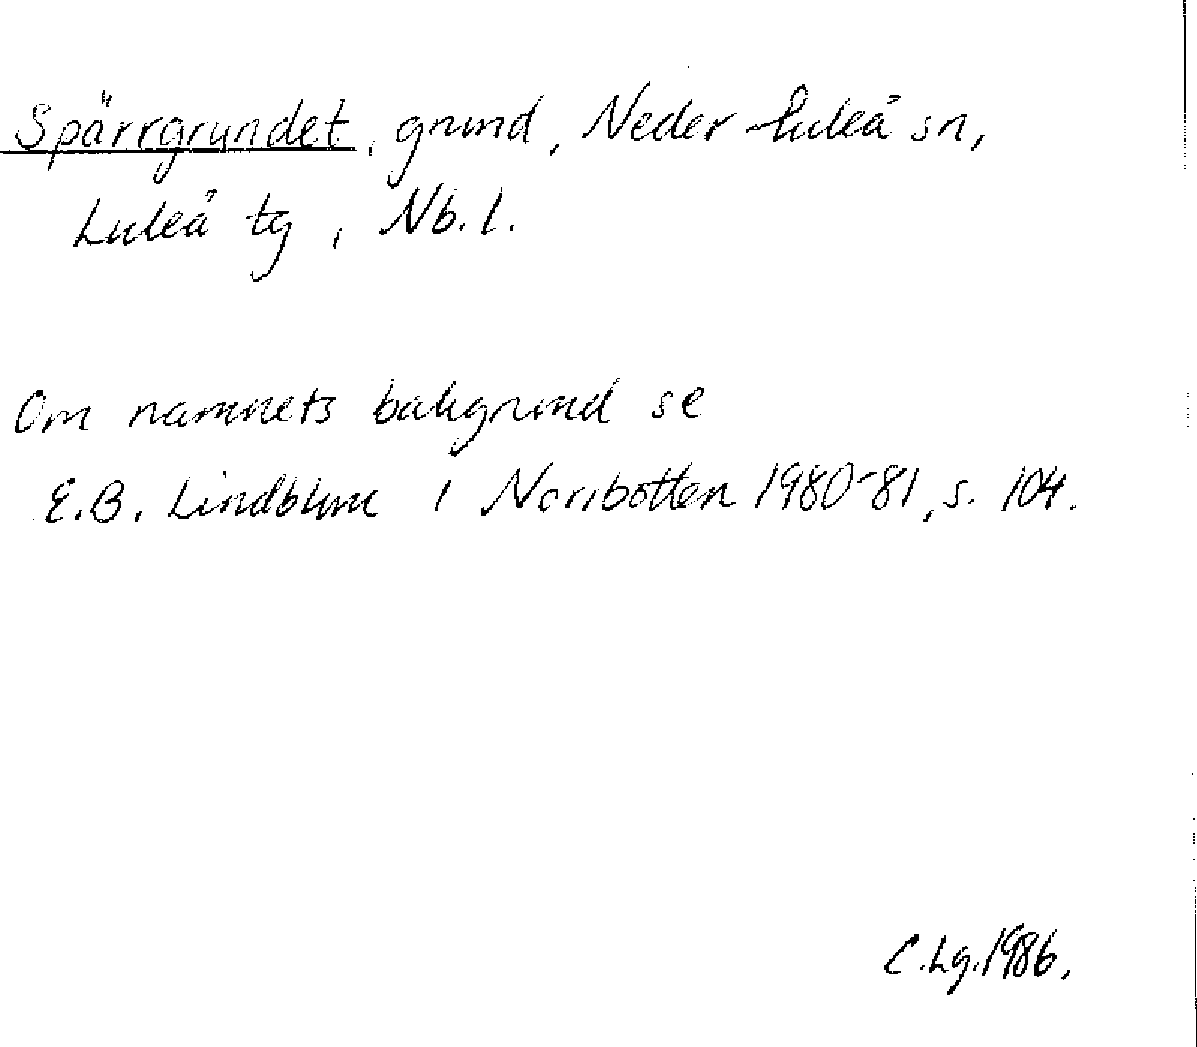 Spärrgrundet, grund, Nederluleå sn,
Luleå tg, Nb. l.
Om namnets bakgrund se
E.B. Lindblom i Norrbotten 1980-81, s. 104.
C.Lg. 1986.